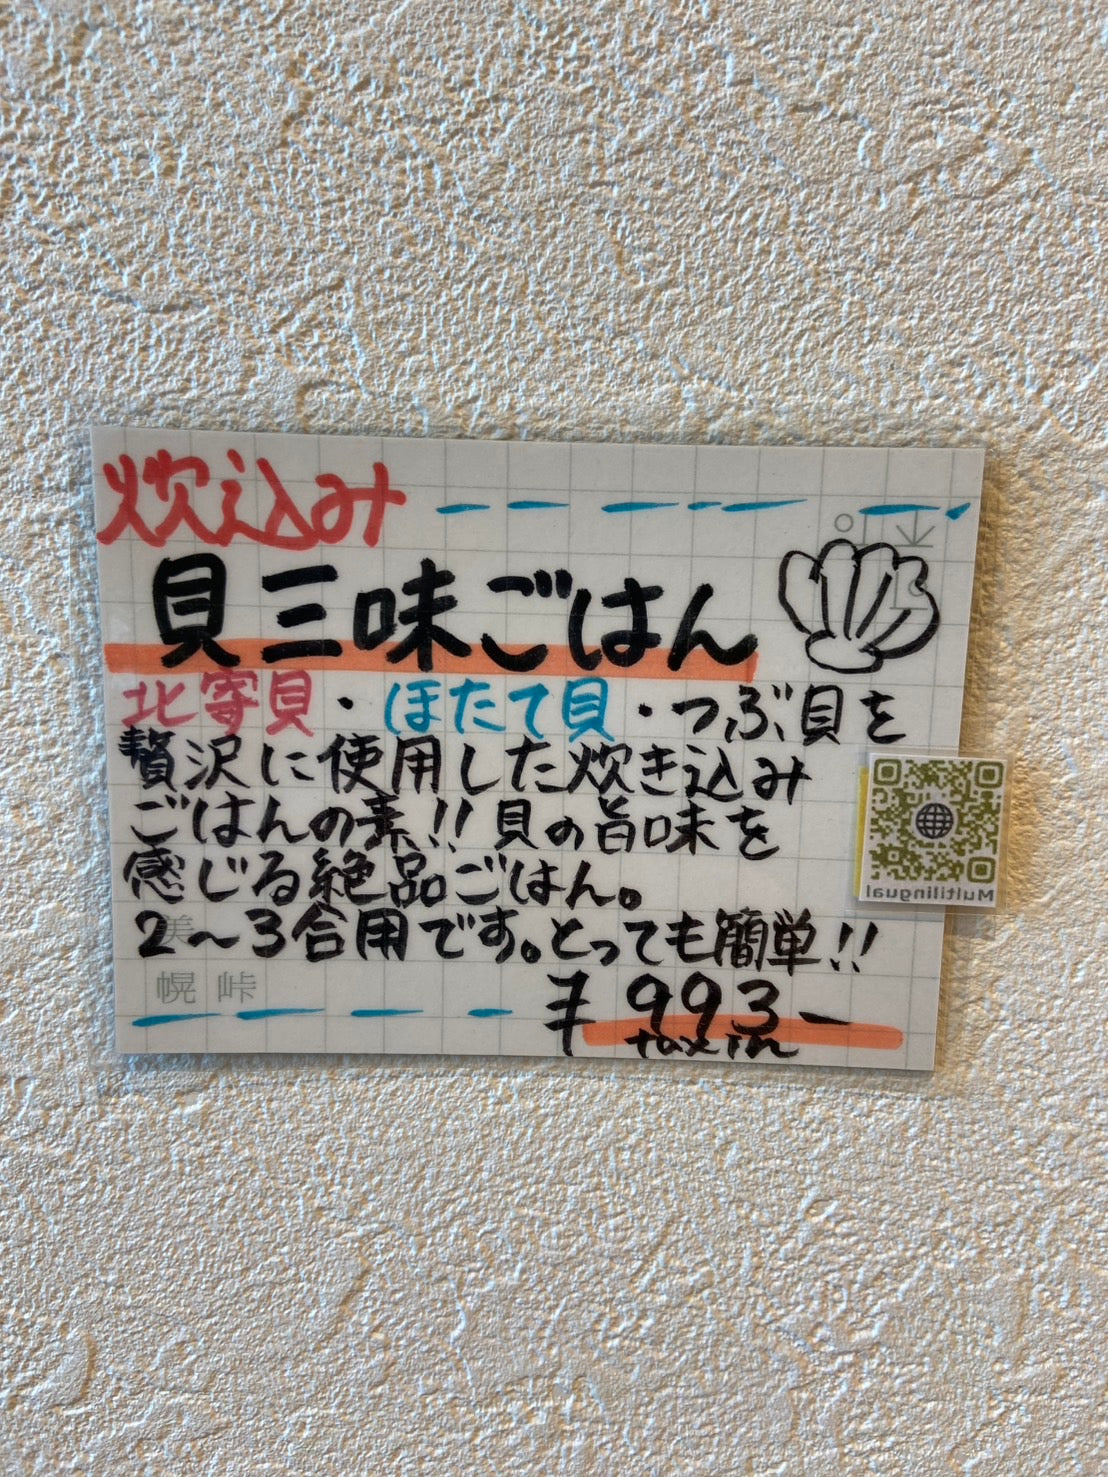 炊込み
貝三味ごはん
北寄貝・ほたて貝・つぶ貝を
贅沢に使用した炊き込み
ごはんの素!! 貝の旨味を
感じる絶品ごはん。
2〜3合用です。とっても簡単!!
¥993-
tax in
Multilingual
美
幌 峠